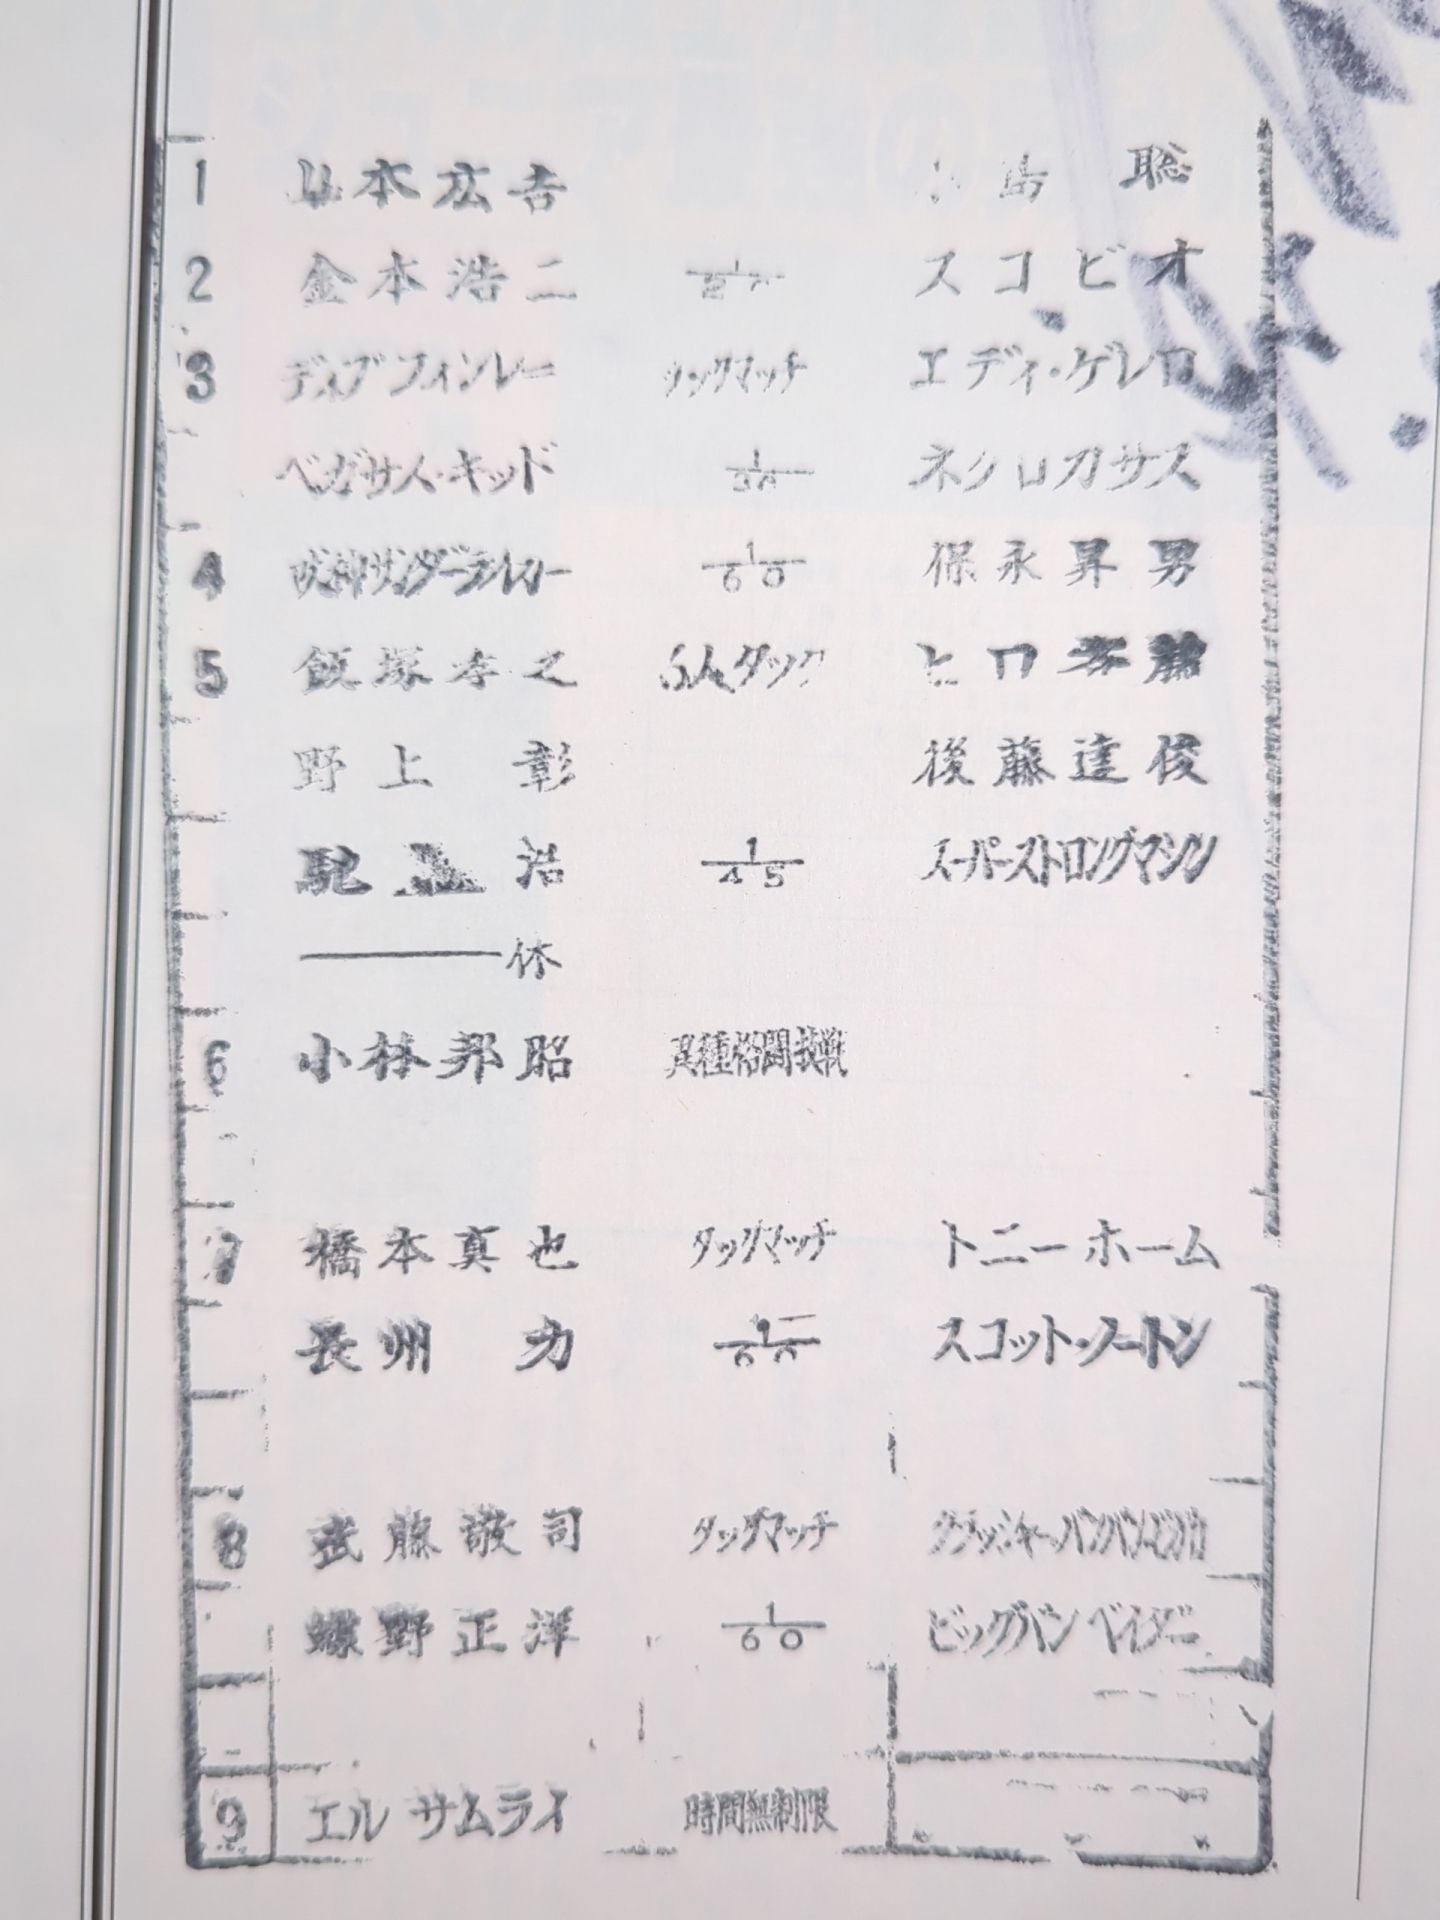 1 山本広吉 小島聡
2 金本浩二 1/20 スコピオ
3 デイブフィンレー タッグマッチ エディ・ゲレロ
ペガサス・キッド 1/30 ネクロカサス
4 獣神サンダーライガー 1/60 保永昇男
5 飯塚孝之 6人タッグ ヒロ斉藤
野上彰 後藤達俊
馳浩 1/45 スーパーストロングマシン
休
6 小林邦昭 異種格闘技戦
7 橋本真也 タッグマッチ トニーホーム
長州力 1/60 スコット・ノートン
8 武藤敬司 タッグマッチ クラッシャー・バンバン・ビガロ
蝶野正洋 1/60 ビッグバンベイダー
9 エルサムライ 時間無制限